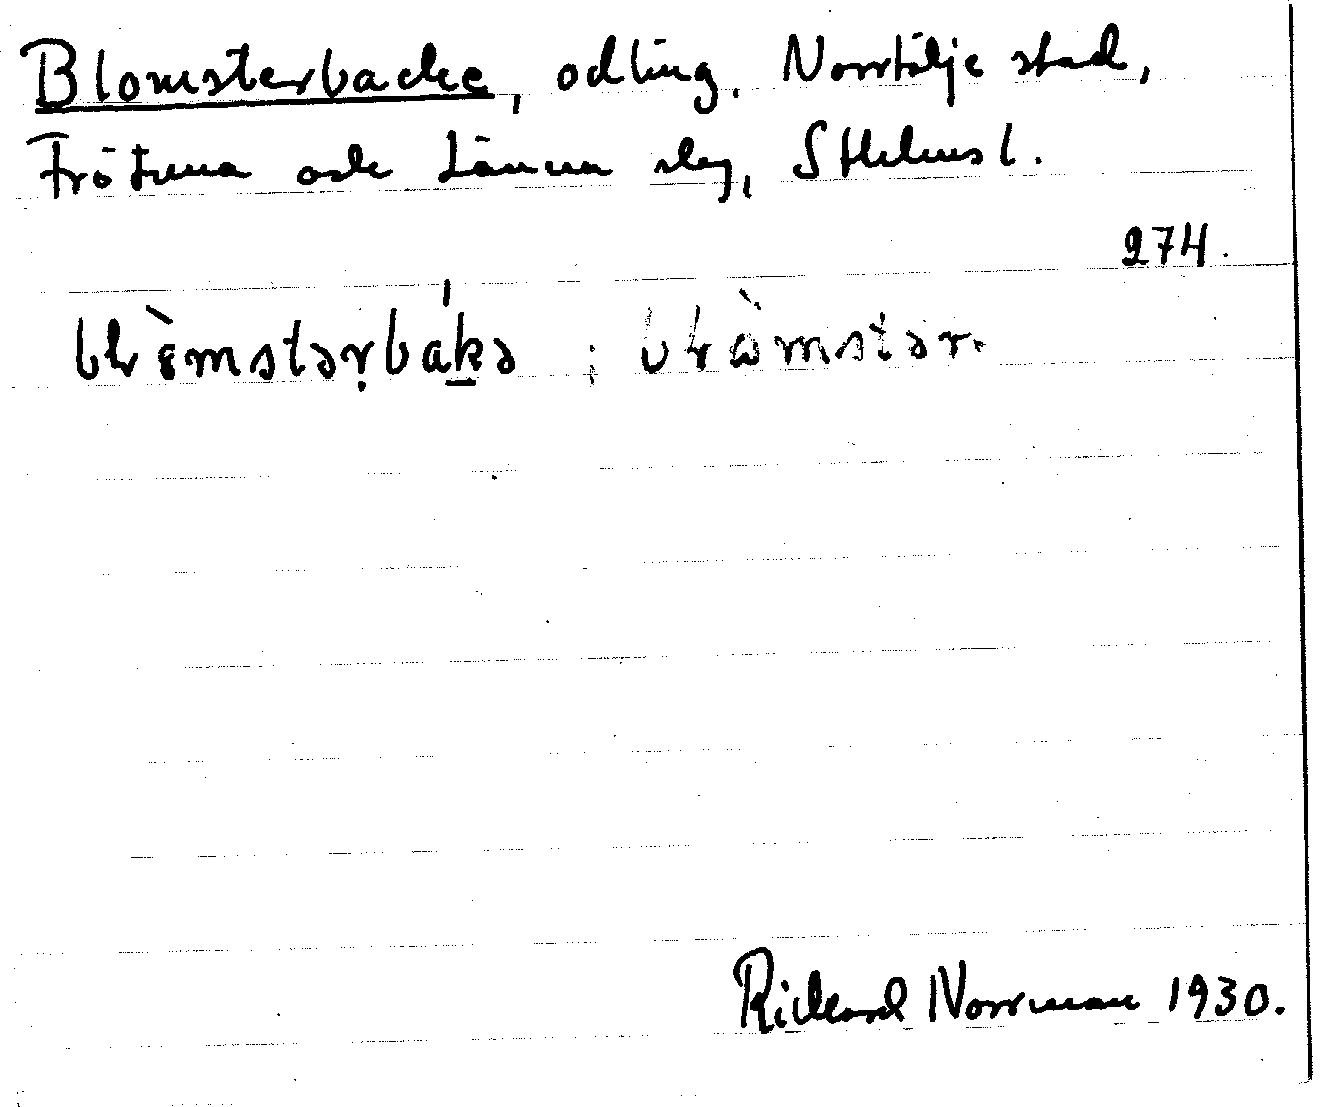 Blomsterbacke, odling. Norrtälje stad,
Frötuna och Länna slg, Sthlms l.
274.
Rickard Norrman 1930.